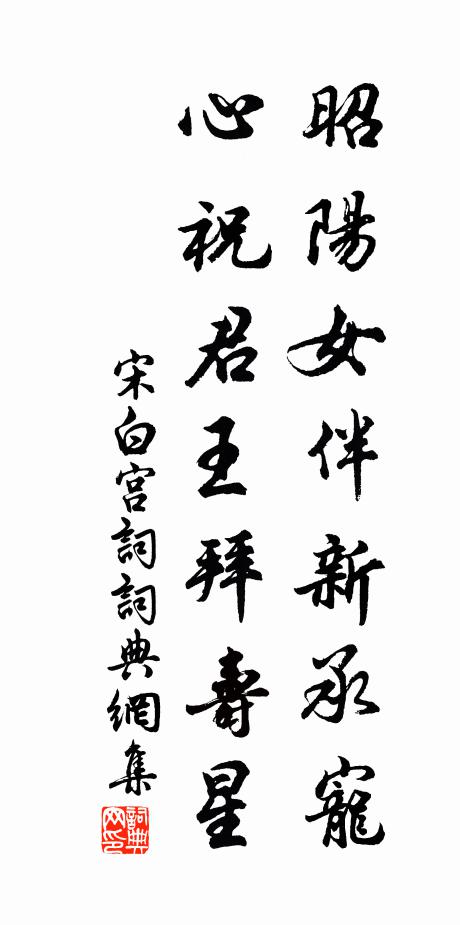 昭陽女伴新承寵
心祝君王拜壽星
宋白宮詞詞典網集
詞典網印